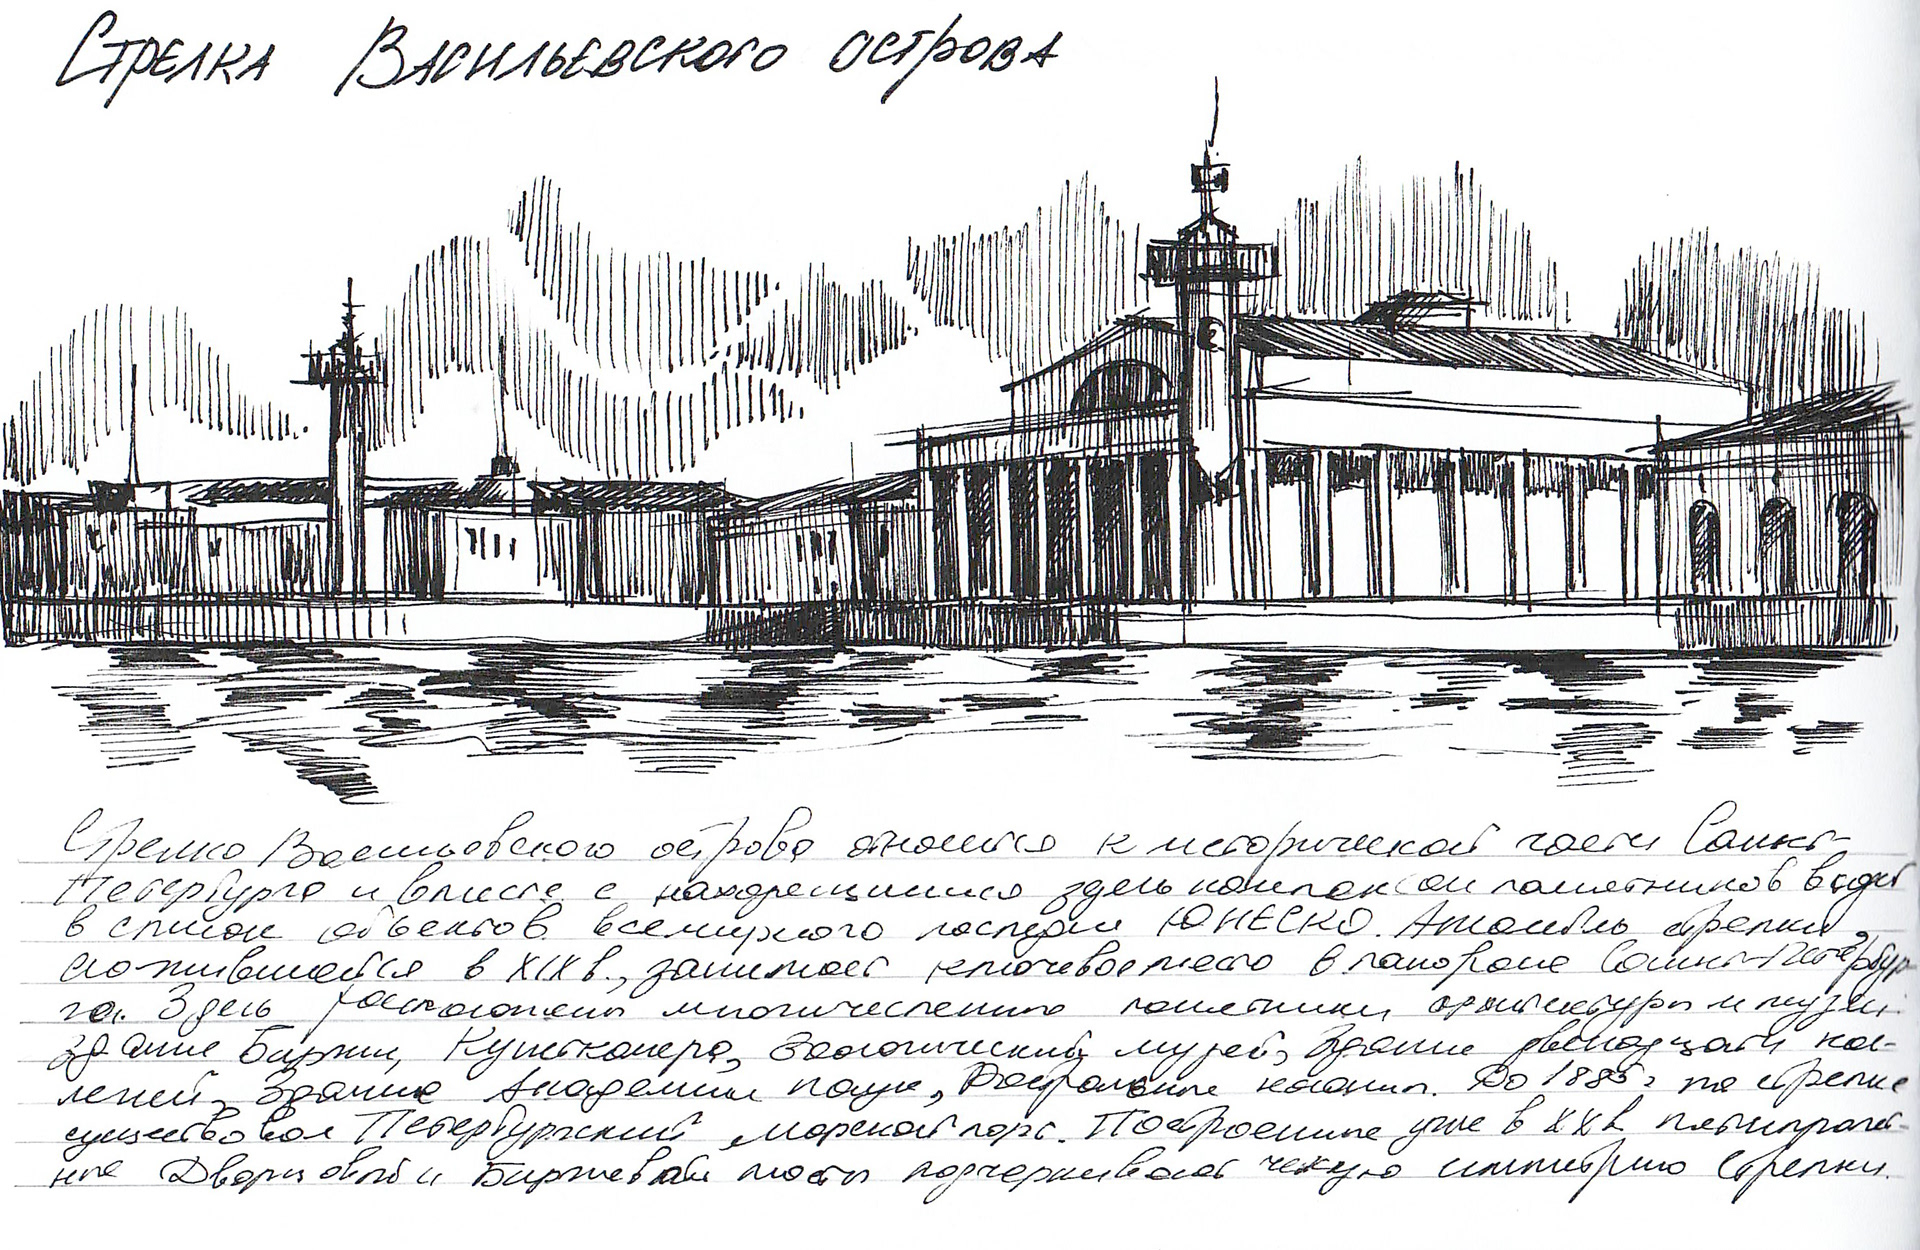 Стрелка Васильевского острова
Стрелка Васильевского острова относится к исторической части Санкт-
Петербурга и вместе с находящимися здесь комплексом памятников входит
в список объектов всемирного наследия ЮНЕСКО. Ансамбль стрелки,
сложившийся в XIX в., занимает ключевое место в панораме Санкт-Петербур-
га. Здесь расположены многочисленные памятники архитектуры и музеи:
здание Биржи, Кунсткамера, Зоологический музей, Здание двенадцати кол-
легий, Здание Академии наук, Ростральные колонны. До 1885 г на стрелке
существовал Петербургский морской порт. Построенные уже в XX в. пятипролёт-
ные Дворцовый и Биржевой мосты подчеркивают чёткую симметрию Стрелки.